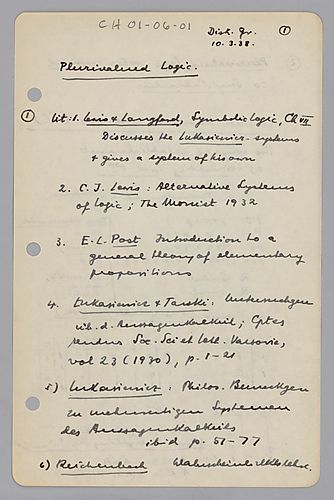 CH 01-06-01
Disc. Gr. ①
10.3.38.
Plurivalued Logic.
① Lit: 1. Lewis & Langford, Symbolic Logic, Ch. VII
Discusses the Lukasiewicz-systems
& gives a system of his own
2. C. I. Lewis: Alternative Systems
of Logic; The Monist 1932
3. E. L. Post Introduction to a
general theory of elementary
propositions
4. Lukasiewicz & Tarski: Untersuchgen
üb. d. Aussagenkalkül; Cptes
rendus Soc. Sci et Lett. Varsovie,
vol 23 (1930), p. 1-21
5) Lukasiewicz: Philos. Bemerkgen
zu mehrwertigen Systemen
des Aussagenkalküls
ibid p. 51-77
6) Reichenbach Wahrscheinlichktslehre.